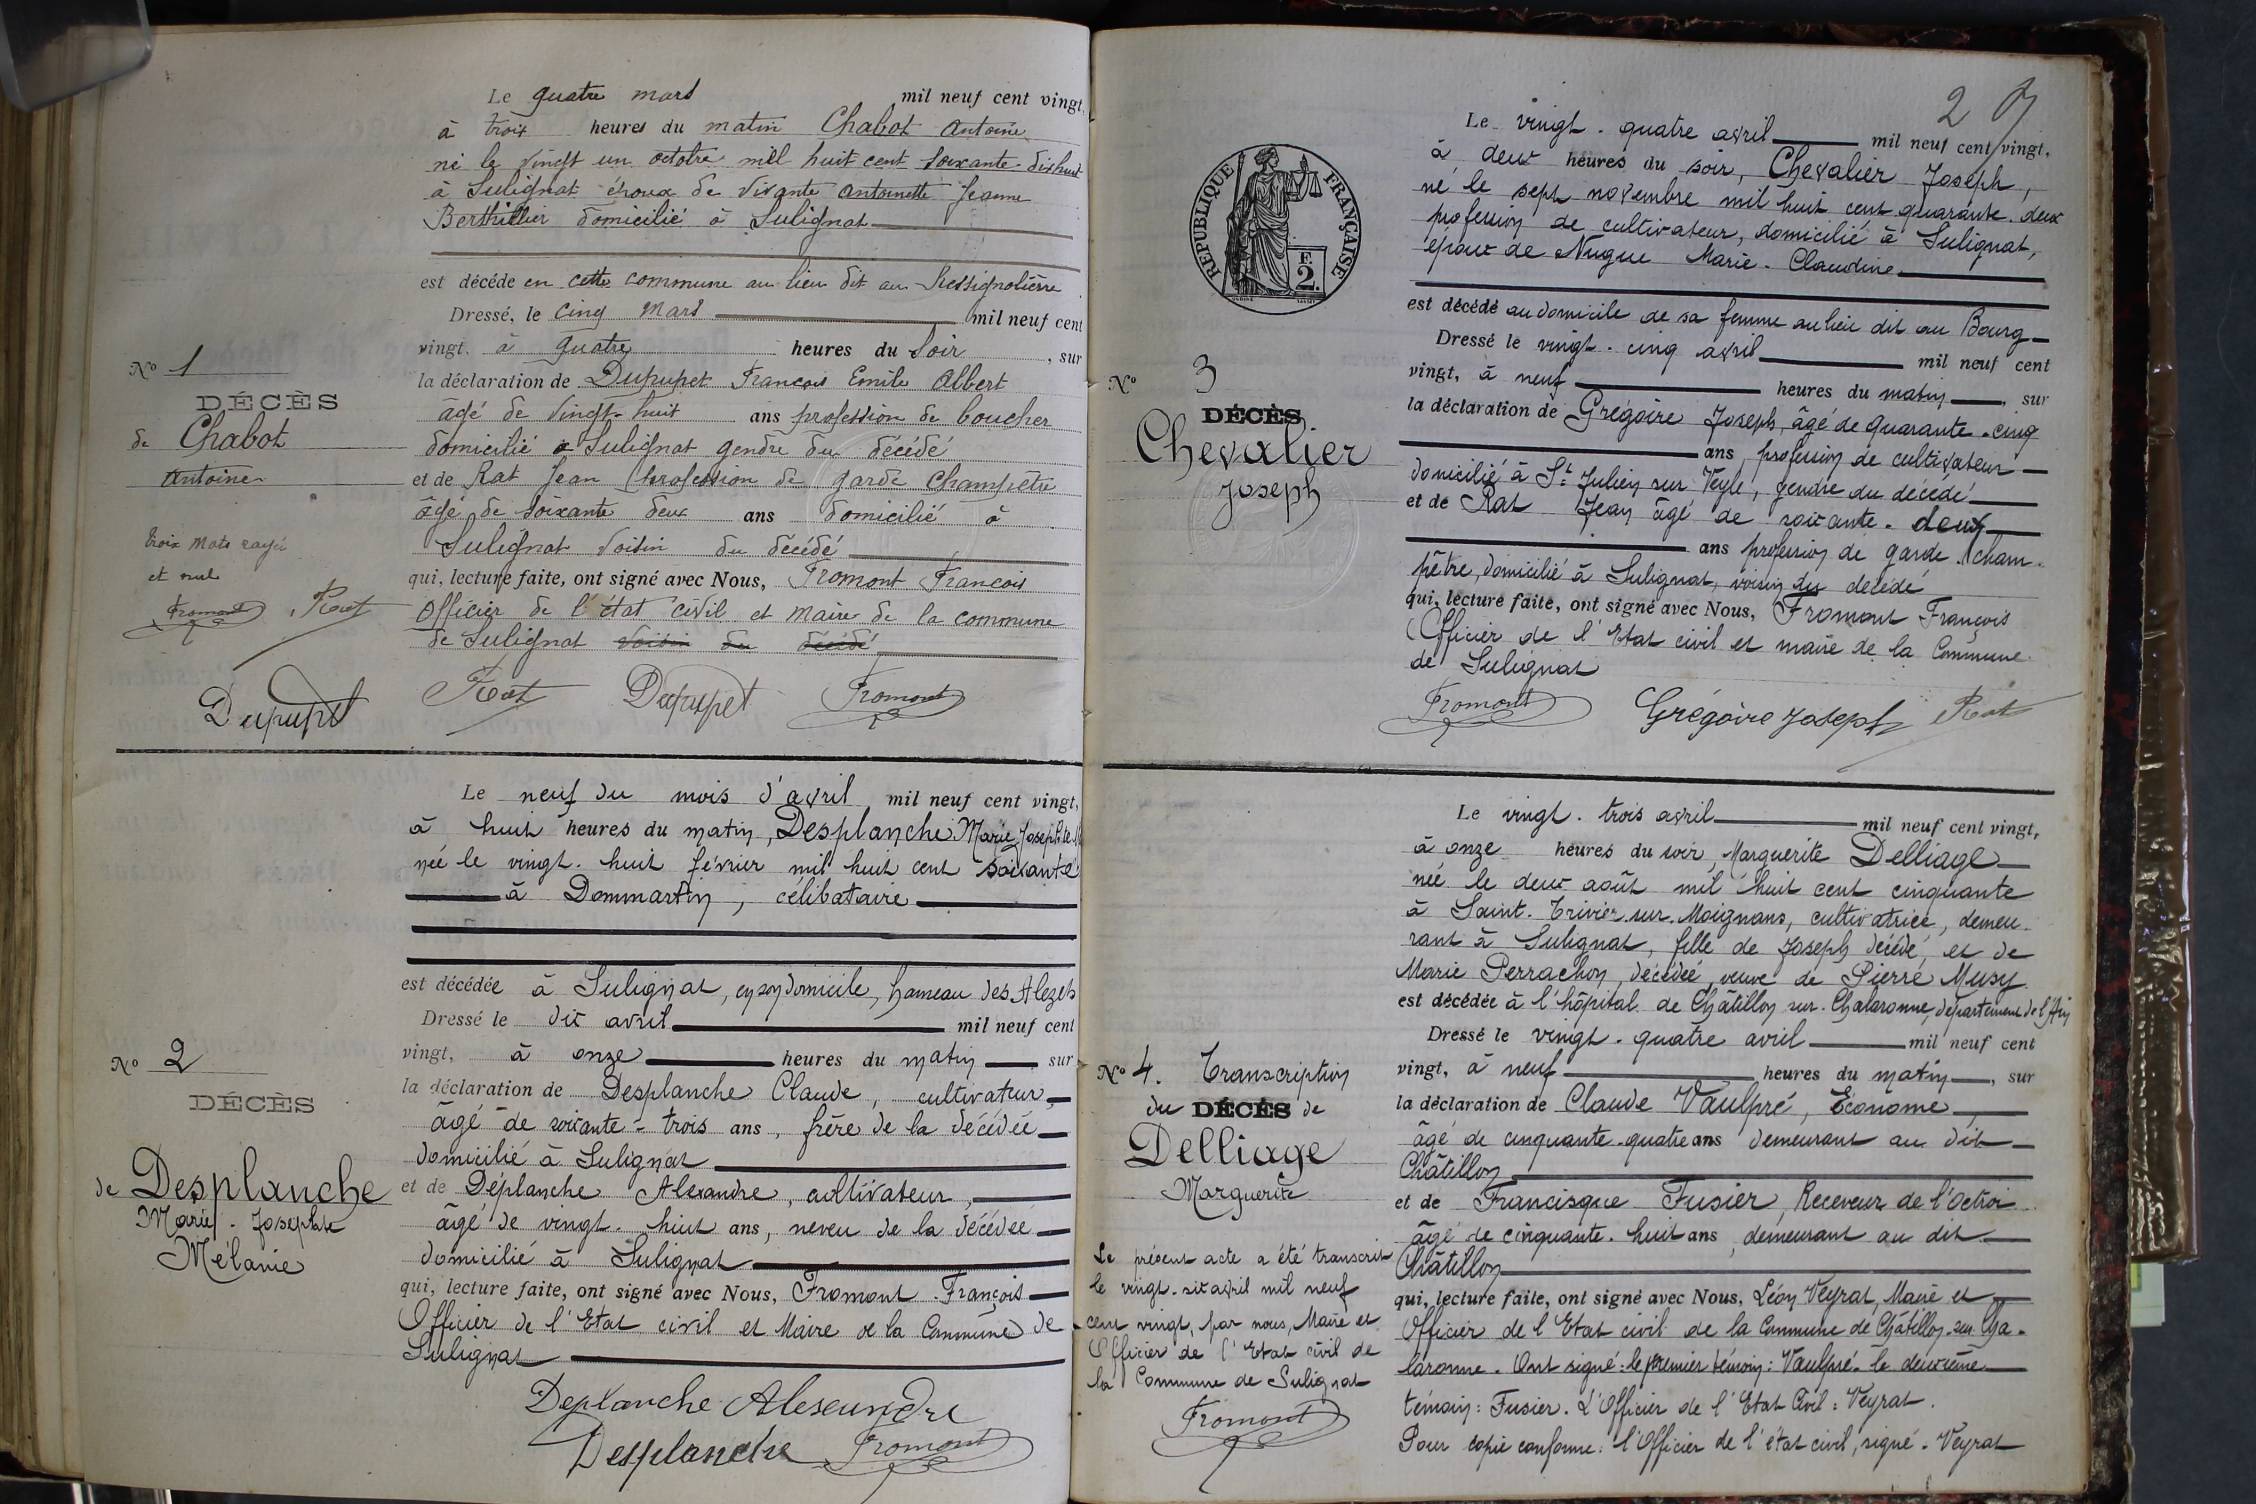 Le quatre mars mil neuf cent vingt,
à trois heures du matin Chabot Antoine
né le vingt un octobre mil huit cent soixante-dix huit
à Sulignat époux de vivante Antoinette Jeanne
Berthillier domicilié à Sulignat
est décédé en cette commune au lieu dit au
Dressé, le cinq mars mil neuf cent
vingt. à quatre heures du soir, sur
la déclaration de Dupupet François Emile Albert
âgé de vingt-huit ans profession de boucher
domicilié à Sulignat gendre du décédé
et de Rat Jean profession de garde champêtre
âgé de soixante deux ans domicilié à
Sulignat voisin du décédé
qui, lecture faite, ont signé avec Nous, Fromont François
Officier de l'état civil et maire de la commune
de Sulignat voisin du décédé
Rat Dupupet Fromont
No 1
DÉCÈS
de Chabot
Antoine
trois mots rayés
et nul
Fromont Rat
Dupupet
Le neuf du mois d'avril mil neuf cent vingt,
à huit heures du matin, Desplanche Marie Josephte
née le vingt-huit février mil huit cent soixante
à Dommartin, célibataire
est décédée à Sulignat, en son domicile, hameau des Alezets
Dressé le dix avril mil neuf cent
vingt, à onze heures du matin sur
la déclaration de Desplanche Claude, cultivateur,
âgé de soixante-trois ans, frère de la décédée
domicilié à Sulignat
et de Déplanche Alexandre, cultivateur,
âgé de vingt-huit ans, neveu de la décédée
domicilié à Sulignat
qui, lecture faite, ont signé avec Nous, Fromont François
Officier de l'Etat civil et Maire de la Commune de
Sulignat
Deplanche Alexandre
Desplanche Fromont
No 2
DÉCÈS
de Desplanche
Marie-Josephte
Mélanie
2
RÉPUBLIQUE FRANÇAISE
F.
2.
Le vingt-quatre avril mil neuf cent vingt,
à deux heures du soir, Chevalier Joseph,
né le sept novembre mil huit cent quarante-deux
profession de cultivateur, domicilié à Sulignat,
époux de Nugue Marie-Claudine
est décédé au domicile de sa femme au lieu dit au Bourg
Dressé le vingt-cinq avril mil neuf cent
vingt, à neuf heures du matin, sur
la déclaration de Grégoire Joseph, âgé de quarante-cinq
ans, profession de cultivateur
domicilié à St Julien sur Veyle, gendre du décédé
et de Rat Jean âgé de soixante-deux
ans profession de garde cham-
pêtre, domicilié à Sulignat, voisin du décédé
qui, lecture faite, ont signé avec Nous, Fromont François
Officier de l'Etat civil et maire de la Commune
de Sulignat
Fromont Grégoire Joseph Rat
No 3
DÉCÈS
Chevalier
Joseph
Le vingt-trois avril mil neuf cent vingt,
à onze heures du soir, Marguerite Delliage
née le deux août mil huit cent cinquante
à Saint-Trivier-sur-Moignans, cultivatrice, demeu-
rant à Sulignat, fille de Joseph décédé, et de
Marie Perrachon, décédée, veuve de Pierre Musy
est décédée à l'hôpital de Châtillon sur-Chalaronne, département de l'Ain
Dressé le vingt-quatre avril mil neuf cent
vingt, à neuf heures du matin, sur
la déclaration de Claude Vaulpré, Econome,
âgé de cinquante-quatre ans demeurant au dit
Châtillon
et de Francisque Fusier, Receveur de l'octroi
âgé de cinquante-huit ans, demeurant au dit
Châtillon
qui, lecture faite, ont signé avec Nous, Léon Veyrat, Maire et
Officier de l'Etat civil de la Commune de Châtillon-sur Cha-
laronne. Ont signé: le premier témoin: Vaulpré. le deuxième
témoin: Fusier. L'Officier de l'Etat Civil: Veyrat.
Pour copie conforme: l'Officier de l'état civil, signé-Veyrat
No 4. Transcription
du DÉCÈS de
Delliage
Marguerite
Le présent acte a été transcrit
le vingt-six avril mil neuf
cent vingt, par nous, Maire et
Officier de l'Etat civil de
la Commune de Sulignat
Fromont